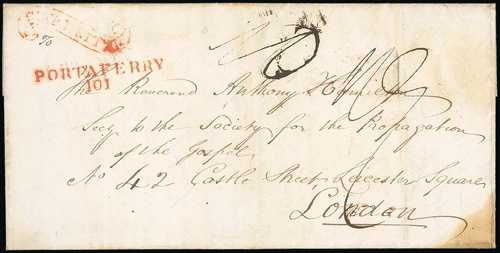 %
PORTAFERRY
101
The Reverend Anthony Hamilton
Secy to the Society for the Propagation
of the Gospel
No 42 Castle Street, Leicester Square
London